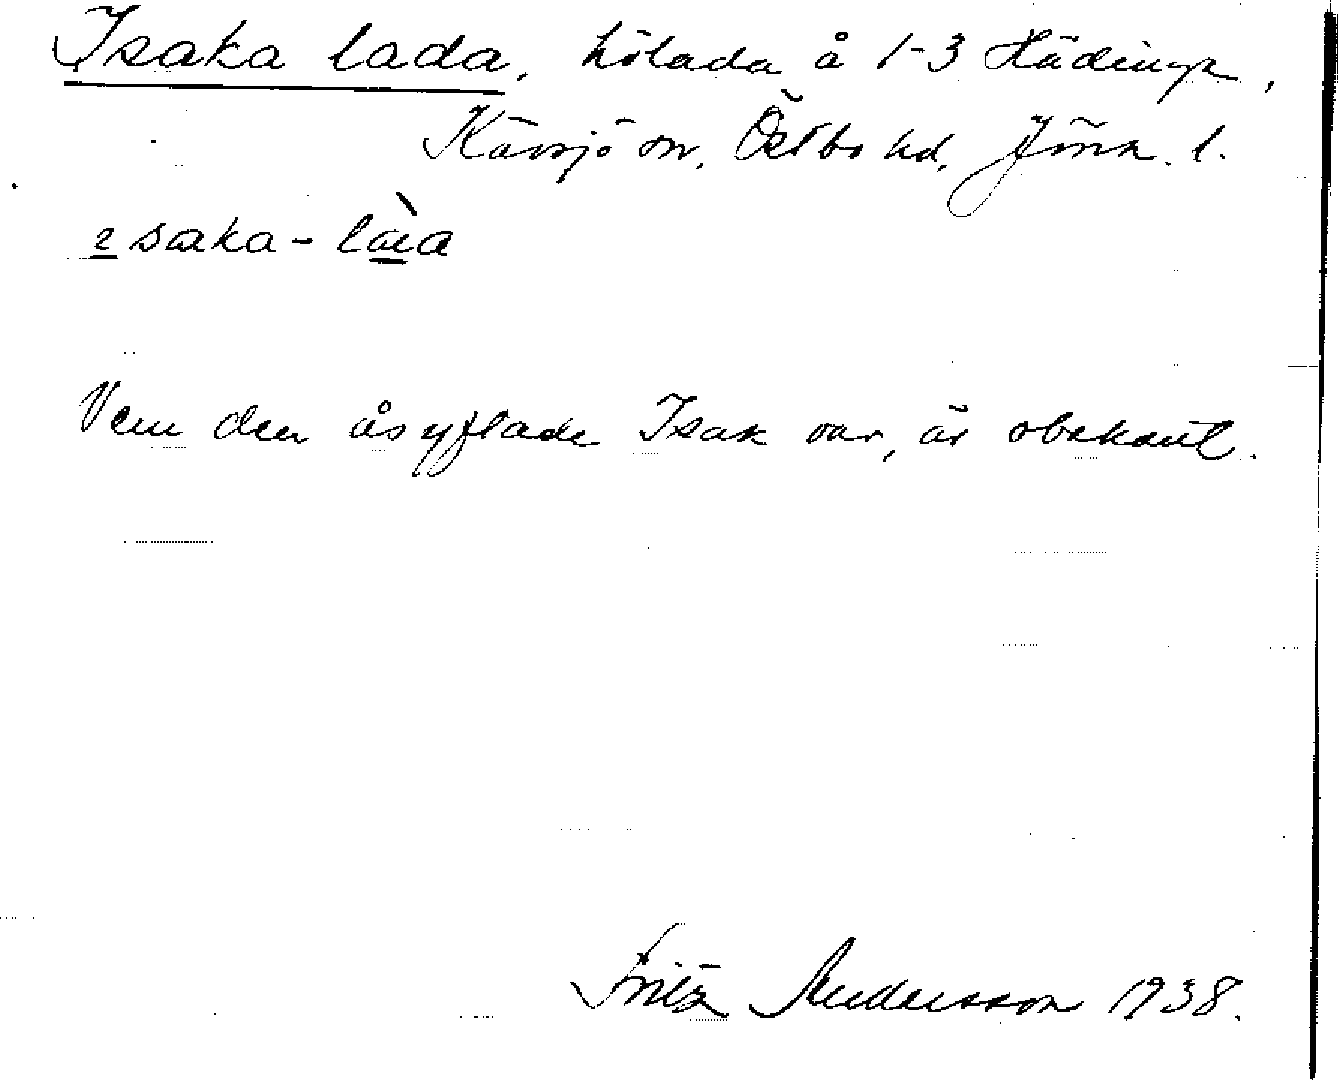 Isaka lada, hölada å 1-3 Hädinge,
Kävsjö sn, Östbo hd, Jönk. l.
saka-
Vem den åsyftade Isak var, är obekant.
Fritz Andersson 1938.